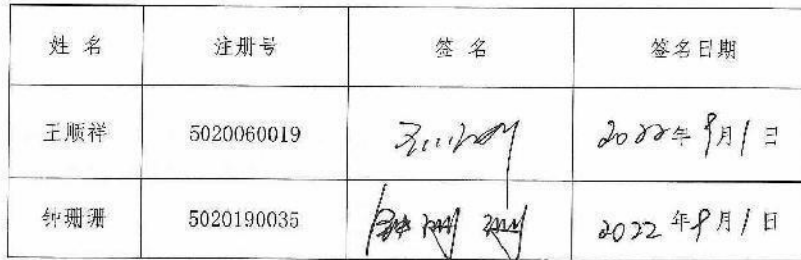 姓 名 注册号 签 名 签名日期
王顺祥 5020060019 2022年9月1日
钟珊珊 5020190035 钟珊珊 2022年9月1日